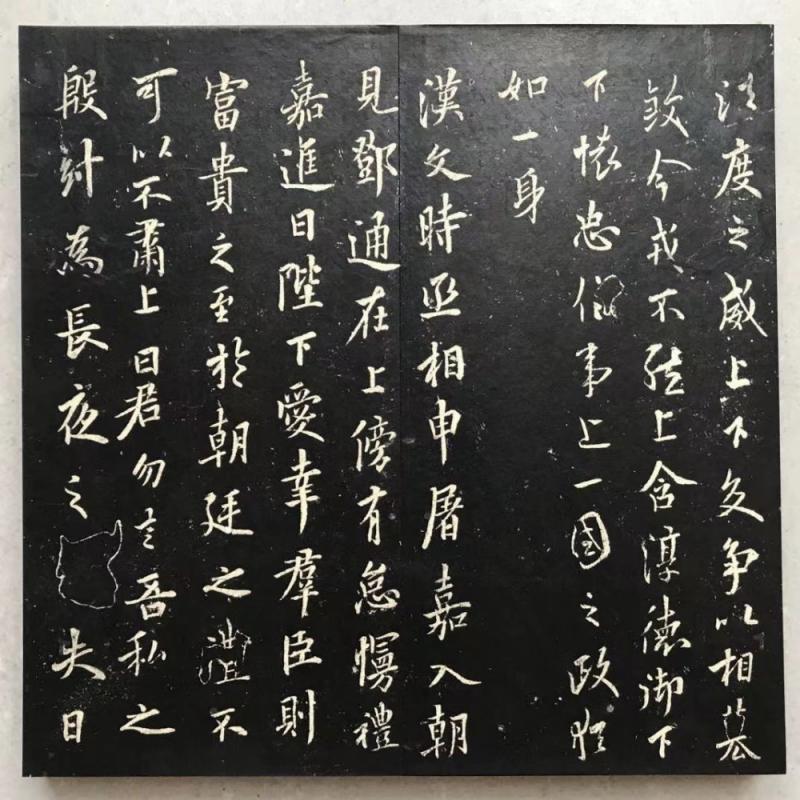 法度之威上下交争以相篡
今戎不然上含淳德御下
下懷忠信事上一國之政猶
如一身
漢文時丞相申屠嘉入朝
見鄧通在上傍有怠慢禮
嘉進曰陛下愛幸羣臣則
富貴之至於朝廷之不
可以不肅上曰君勿言吾私之
殷紂為長夜之失日